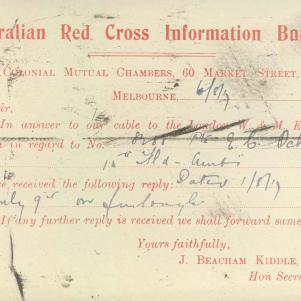 ralian Red Cross Information Bu
Colonial Mutual Chambers, 60 Market Street,
Melbourne, 6/8/17
ir,
In answer to our cable to the London W. & M. E
n in regard to No. Pte E. C.
Fld Amb
received the following reply: Dated 1/8/17
on furlough
If any further reply is received we shall forward same
Yours faithfully,
J. Beacham Kiddle,
Hon Secre